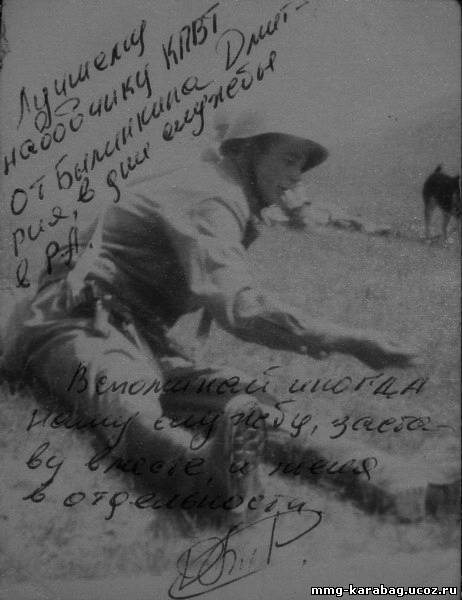 Лучшему
наводчику КПВТ
от Былинкина Дмит-
рия, в дни службы
в РА.
Вспоминай иногда
нашу службу, заста-
ву вместе, и меня
в отдельности
mmg-karabag.ucoz.ru